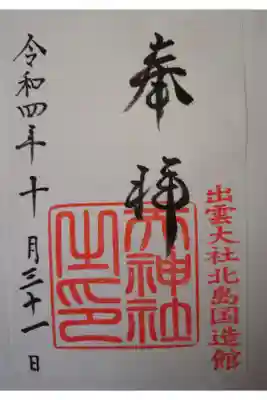 出雲大社北島国造館
奉拝
天神社之印
令和四年十月三十一日